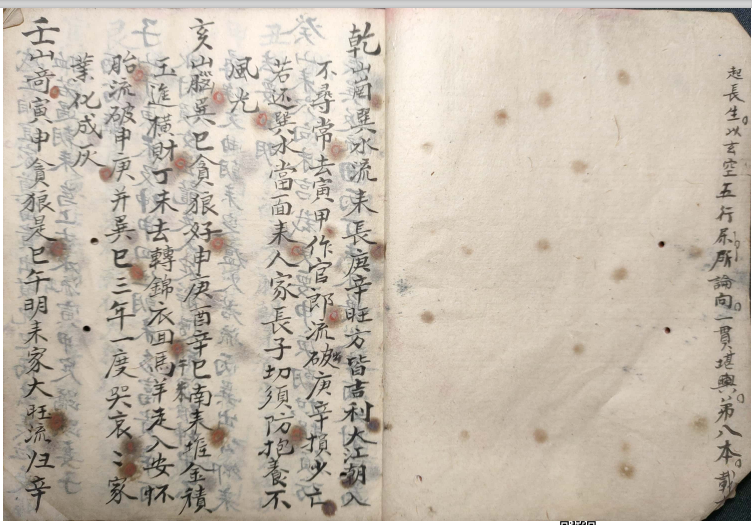 起長生以玄空五行屎所論向一貫堪輿第八本載
乾山崗巽水流来長庚辛旺方皆吉利大江潮入
不尋常去寅甲作官郎流破庚辛損少亡
若还巽水當面来人家長子切須防抱養不
風光
亥山腦巽巳貪狼好申庚酉辛巳南来堆金積
玉進横財丁未去轉錦衣回馬羊走入安怀
胎流破申庚并巽巳三年一度哭哀〻家
業化成灰
壬山奇寅申貪狼是巳午明来家大旺流归辛